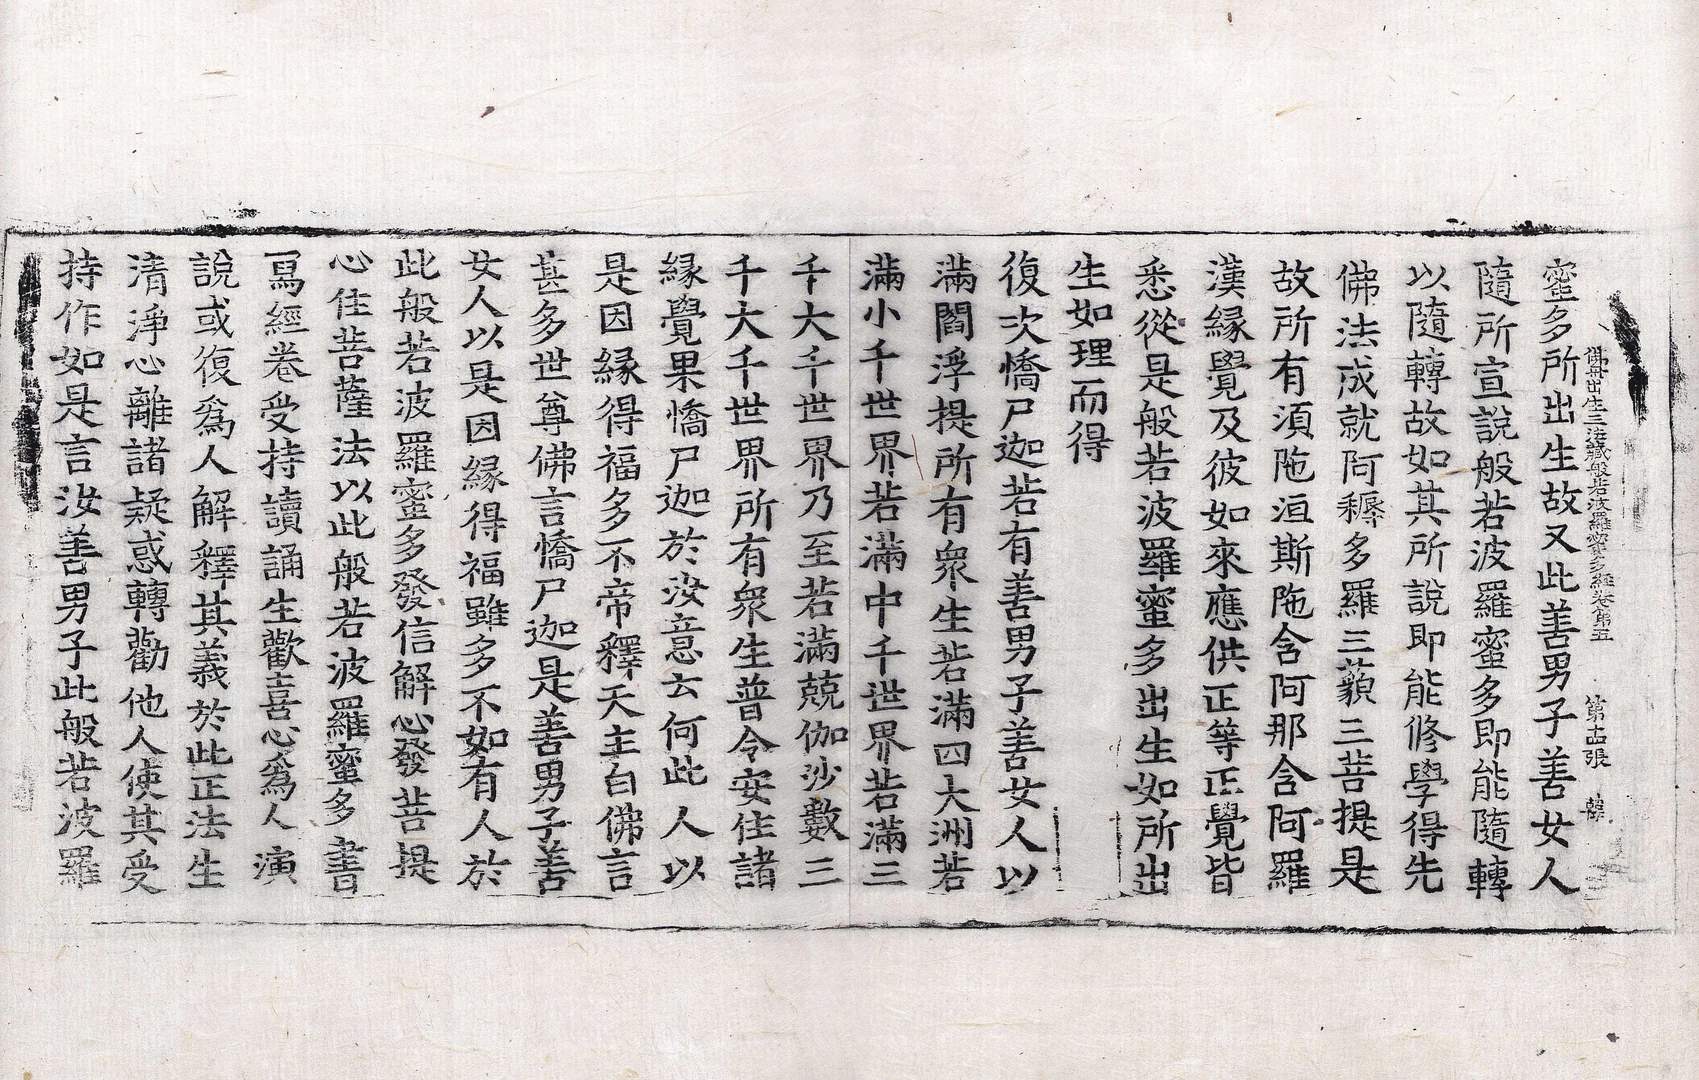 佛母出生三法藏般若波羅蜜多經卷第五 第十四張 韓
蜜多所出生故又此善男子善女人
隨所宣說般若波羅蜜多即能隨轉
以隨轉故如其所說即能修學得先
佛法成就阿耨多羅三藐三菩提是
故所有須陁洹斯陁含阿那含阿羅
漢緣覺及彼如來應供正等正覺皆
悉從是般若波羅蜜多出生如所出
生如理而得
復次憍尸迦若有善男子善女人以
滿閻浮提所有衆生若滿四大洲若
滿小千世界若滿中千世界若滿三
千大千世界乃至若滿兢伽沙數三
千大千世界所有衆生普令安住諸
緣覺果憍尸迦於汝意云何此人以
是因緣得福多不帝釋天主白佛言
甚多世尊佛言憍尸迦是善男子善
女人以是因緣得福雖多不如有人於
此般若波羅蜜多發信解心發菩提
心住菩薩法以此般若波羅蜜多書
寫經卷受持讀誦生歡喜心爲人演
說或復爲人解釋其義於此正法生
清淨心離諸疑惑轉勸他人使其受
持作如是言汝善男子此般若波羅